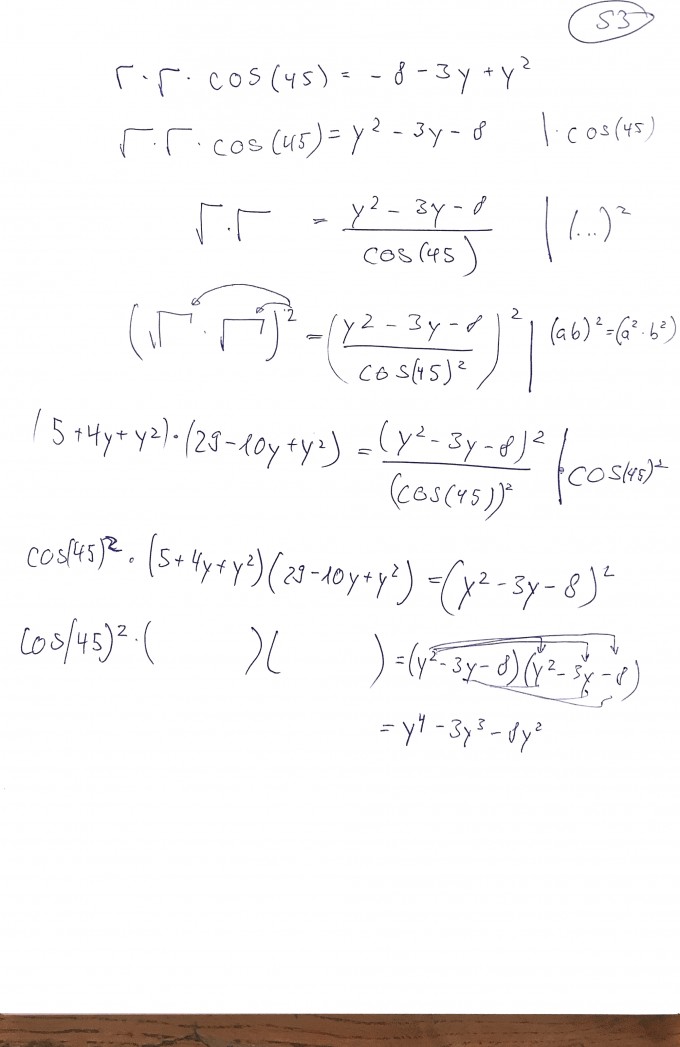 53
√ · √ · cos(45) = - 8 - 3y + y²
√ · √ · cos(45) = y² - 3y - 8 | · cos(45)
√ · √ = (y² - 3y - 8) / cos(45) | (...)²
(√ · √)² = ((y2 - 3y - 8) / cos(45)²)² | (ab)² = (a² · b²)
(5 + 4y + y²) · (29 - 10y + y²) = (y² - 3y - 8)² / (cos(45))² | cos(45)²
cos(45)² · (5 + 4y + y²)(29 - 10y + y²) = (y² - 3y - 8)²
cos(45)² · ( )( ) = (y² - 3y - 8)(y² - 3y - 8)
= y⁴ - 3y³ - 8y²